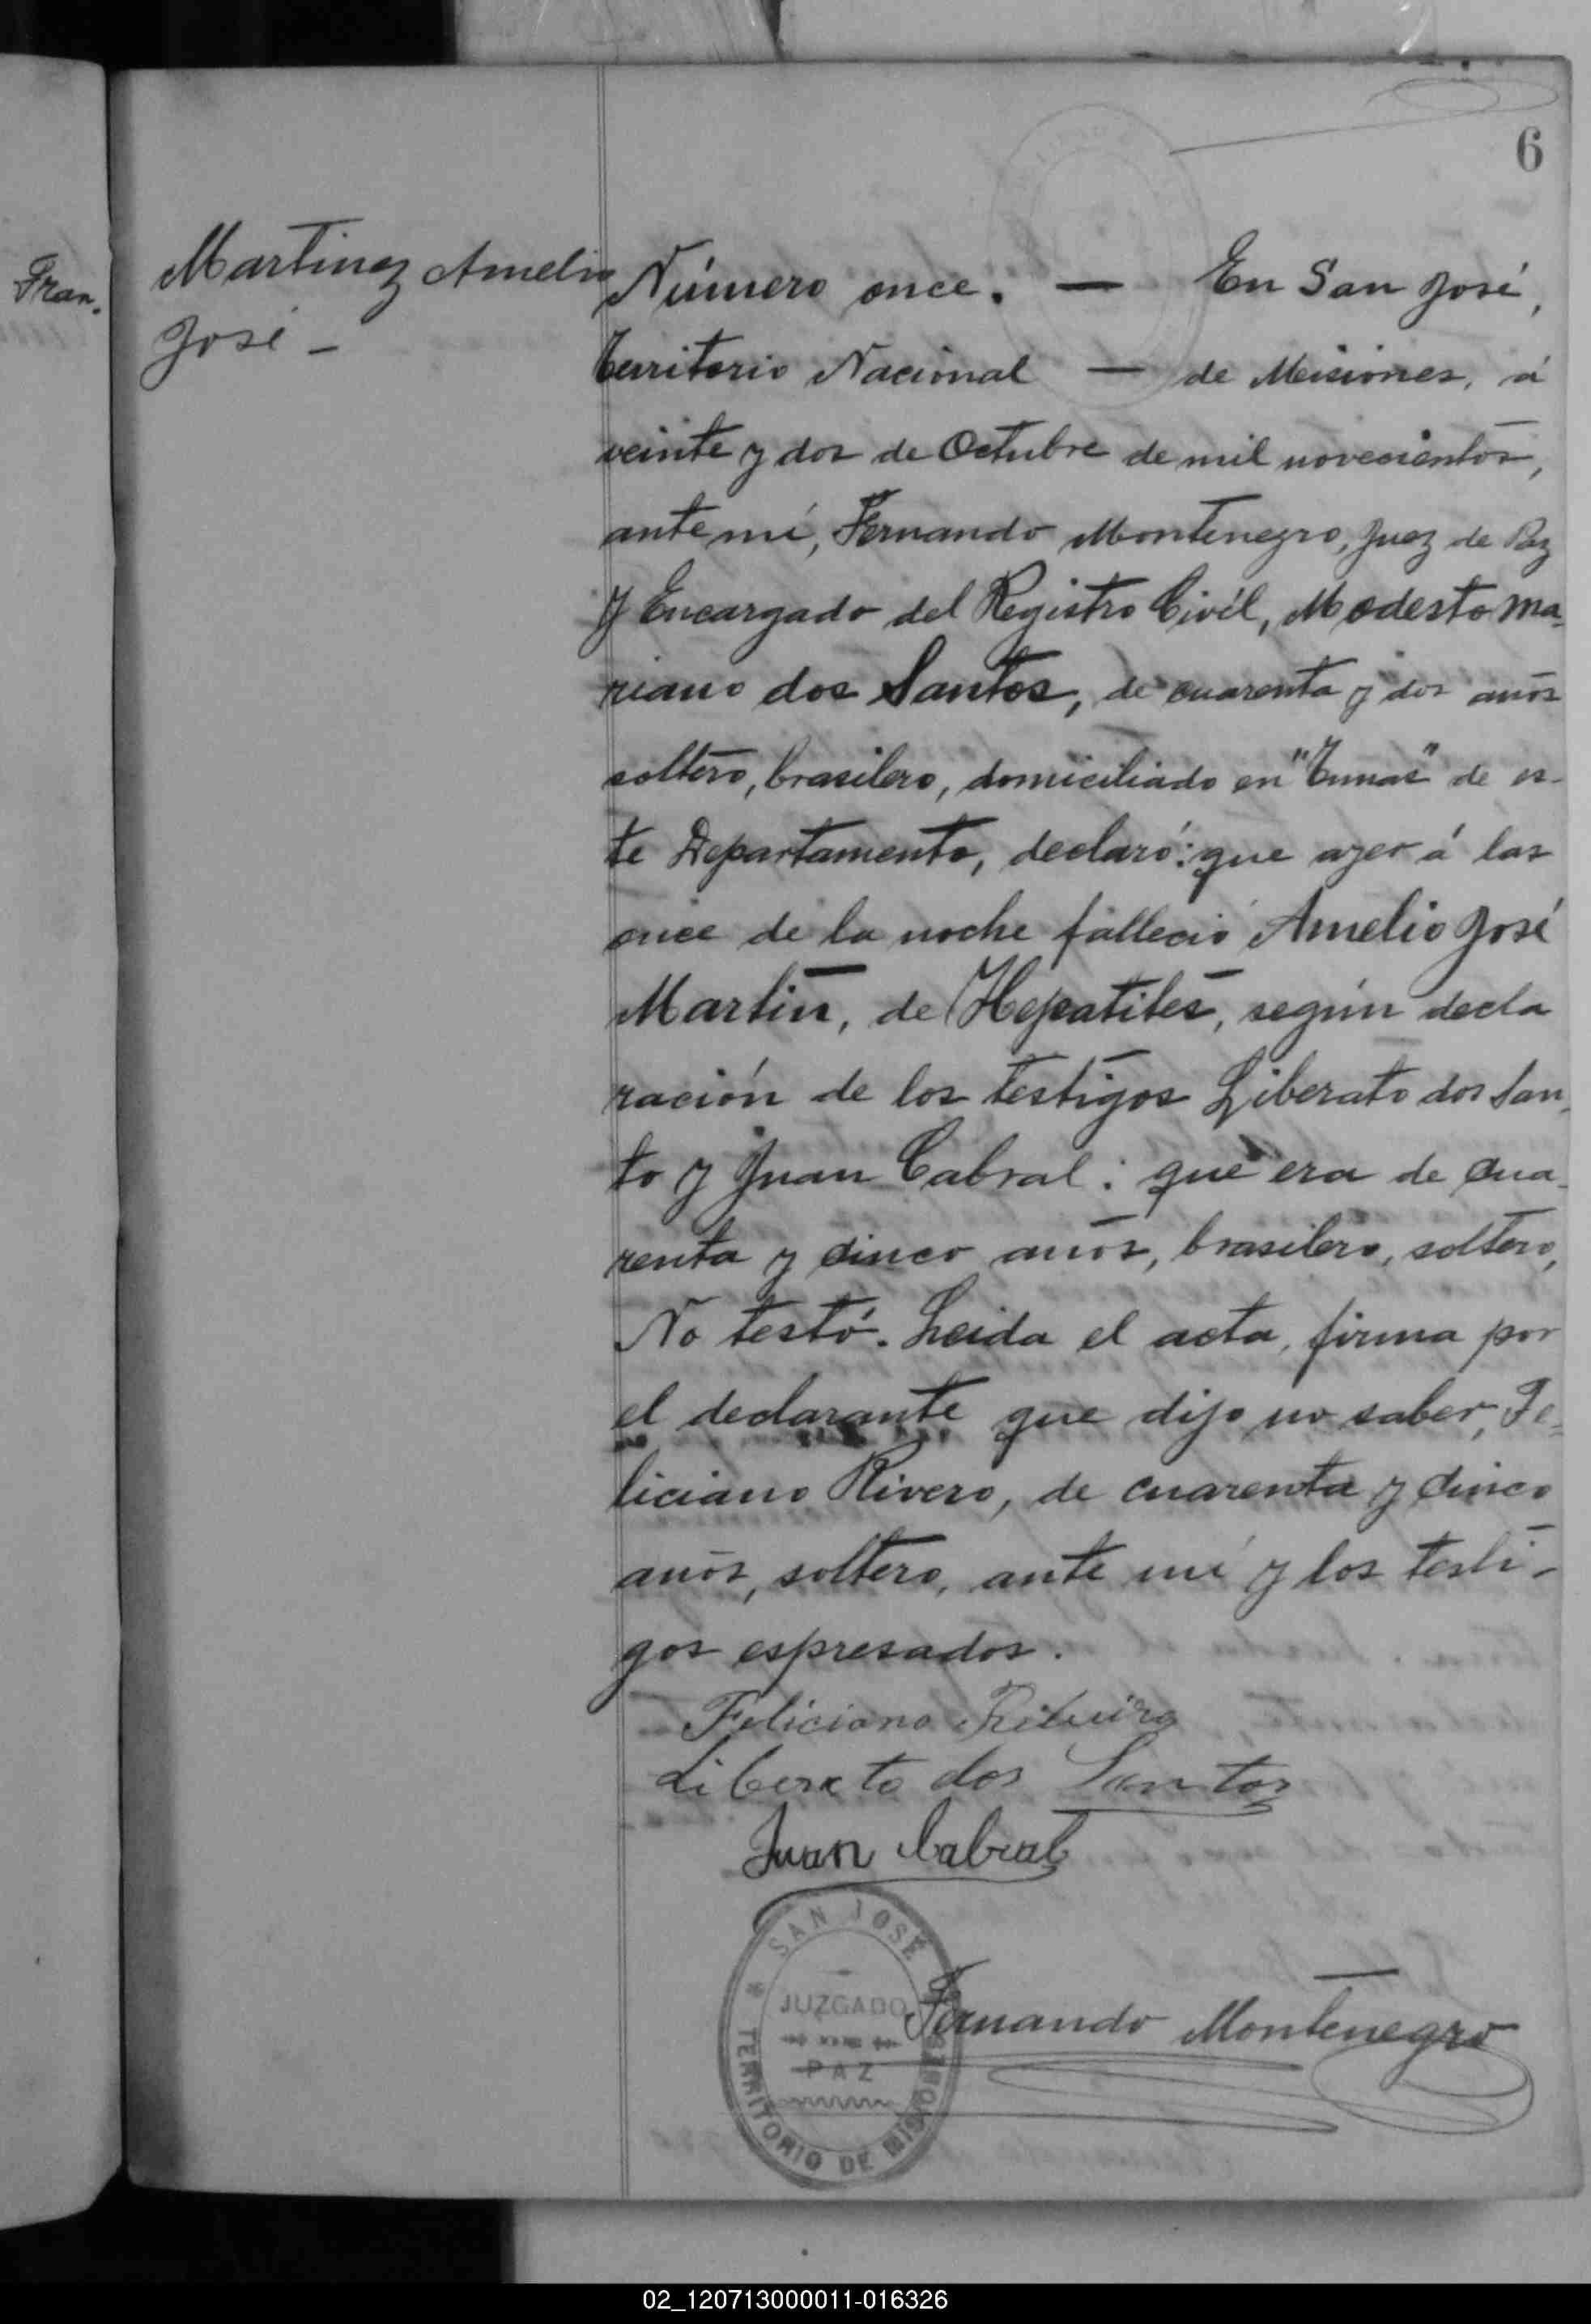 6
Fran.
Martinez Amelio
José -
Número once. — En San José,
territorio Nacional — de Misiones, á
veinte y dos de Octubre de mil novecientos,
ante mí, Fernando Montenegro, Juez de Paz
y Encargado del Registro Civil, Modesto Ma-
riano dos Santos, de cuarenta y dos años
soltero, brasilero, domiciliado en "Tunas" de es-
te Departamento, declaró: que ayer á las
once de la noche falleció Amelio José
Martin, de Hepatites, según decla
ración de los testigos Liberato dos San-
to y Juan Cabral: que era de cua-
renta y cinco años, brasilero, soltero,
No testó. Leida el acta, firma por
el declarante que dijo no saber, Fe-
liciano Rivero, de cuarenta y cinco
años, soltero, ante mí y los testi-
gos espresados.
Feliciano Ribeiro
Liberato dos Santos
Juan Cabral
SAN JOSÉ
JUZGADO
PAZ
TERRITORIO DE MISIONES
Fernando Montenegro
02_120713000011-016326